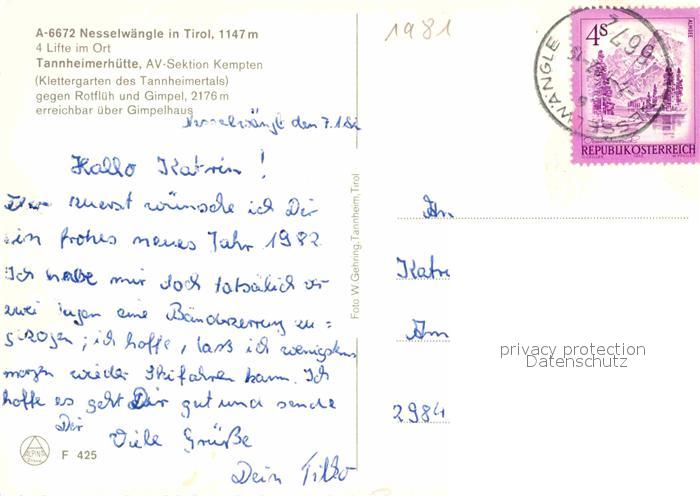 A-6672 Nesselwängle in Tirol, 1147 m
4 Lifte im Ort
Tannheimerhütte, AV-Sektion Kempten
(Klettergarten des Tannheimertals)
gegen Rotflüh und Gimpel, 2176 m
erreichbar über Gimpelhaus
1981
4S
ALMSEE
REPUBLIK ÖSTERREICH
NESSELWÄNGLE
6672
Nesselwängle den 7.1.82
Hallo Katrin!
zuerst wünsche ich Dir
ein frohes neues Jahr 1982
Ich habe mir doch tatsächlich vor
zwei Tagen eine Bänderzerrung zu=
gezogen; ich hoffe, daß ich wenigstens
morgen wieder Skifahren kann. Ich
hoffe es geht Dir gut und sende
Dir Viele Grüße
Dein Tilko
ALPINA
F 425
Foto W. Gehring, Tannheim, Tirol
An
Katri
Am
2984
privacy protection
Datenschutz